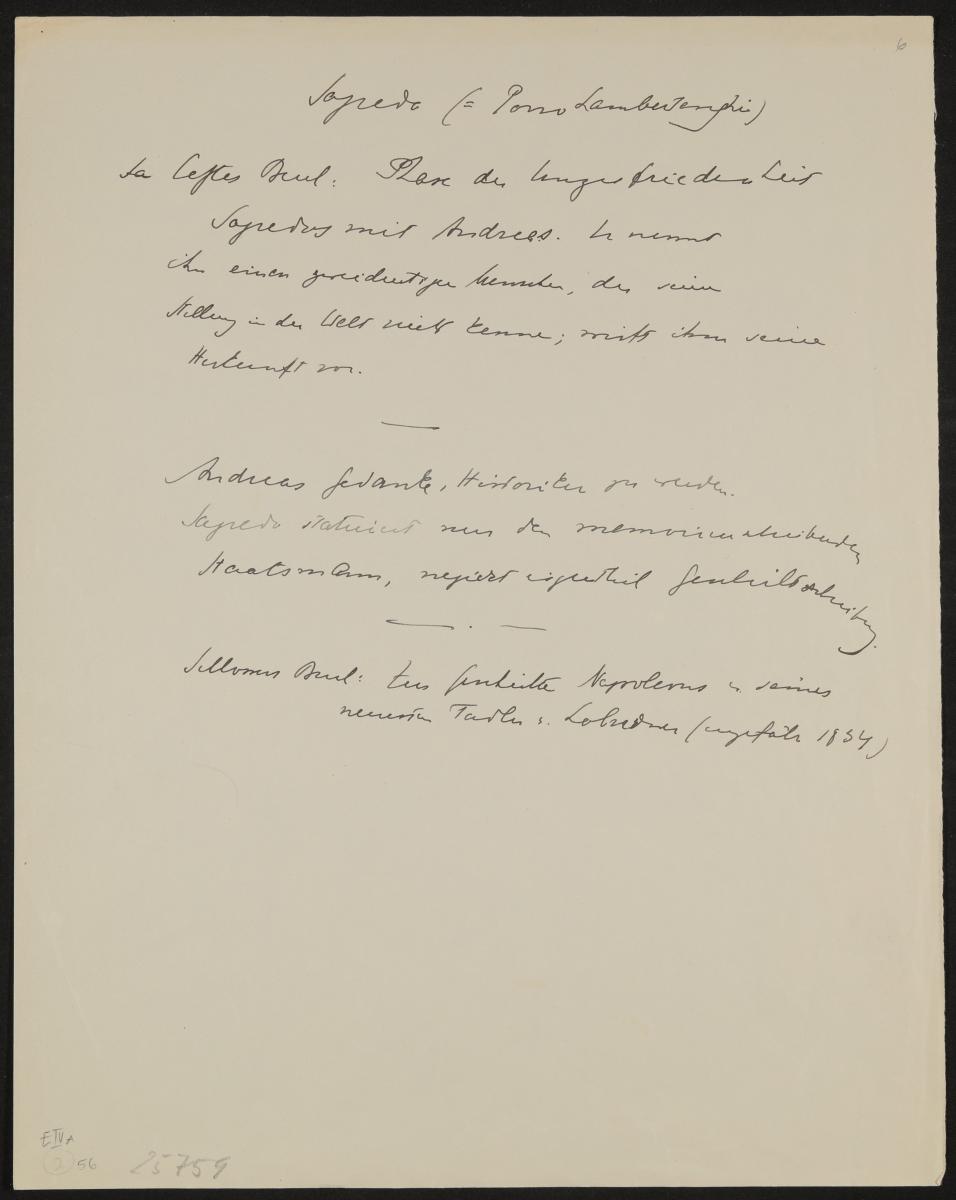 6
Sagredo (= Porro Lambertenghi)
Letztes Buch: Phase der Unzufriedenheit
Sagredos mit Andreas. Er nennt
ihn einen zweideutigen Menschen, der seine
Stellung in der Welt nicht kenne; wirft ihm seine
Herkunft vor.
Andreas Gedanke, Historiker zu werden.
Sagredo statuiert nur den memoirenschreibenden
Staatsmann, negiert eigentlich Geschichtschreibung.
Schlossers Buch: Zur Geschichte Napoleons u. seines
neuesten Tadler u. Lobredner (ungefähr 1834)
E IV A
2 56
25759